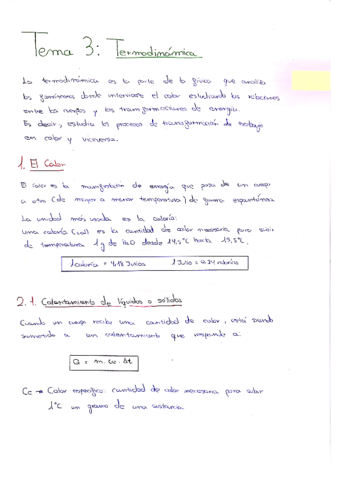 Tema 3: Termodinámica
La termodinámica es la parte de la física que analiza
los fenómenos donde interviene el calor estudiando las relaciones
entre la energía y las transformaciones de energía.
Es decir, estudia los procesos de transformación de trabajo
en calor y viceversa.
1. El Calor
El calor es la manifestación de energía que pasa de un cuerpo
a otro (de mayor a menor temperatura) de forma espontánea.
La unidad más usada es la caloría:
Una caloría (cal) es la cantidad de calor necesaria para subir
de temperatura 1g de H2O desde 14,5°C hasta 15,5°C.
1 caloría = 4,18 Julios 1 Julio = 0,24 calorías
2.1. Calentamiento de líquidos o sólidos
Cuando un cuerpo recibe una cantidad de calor, está siendo
sometido a un calentamiento que responde a:
Q = m · Ce · Δt
Ce → Calor específico: cantidad de calor necesaria para subir
1°C un gramo de una sustancia.